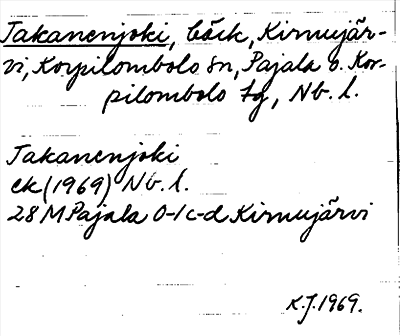 Takanenjoki, bäck, Kirnujär-
vi, Korpilombolo sn, Pajala o. Kor-
pilombolo tg, Nb. l.
Takanenjoki
ek (1969) Nb. l.
28 M Pajala 0-1 c-d Kirnujärvi
K.J. 1969.